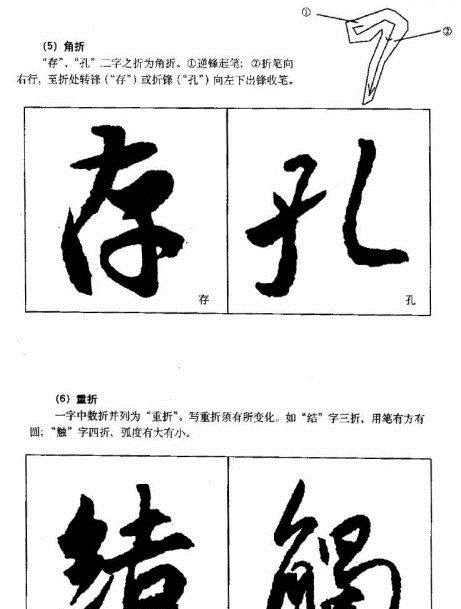 ①
②
(5) 角折
“存”、“孔”二字之折为角折。①逆锋起笔；②折笔向
右行，至折处转锋（“存”）或折锋（“孔”）向左下出锋收笔。
存 孔
存 孔
(6) 重折
一字中数折并列为“重折”。写重折须有所变化。如“结”字三折，用笔有方有
圆；“触”字四折，弧度有大有小。
结 觸